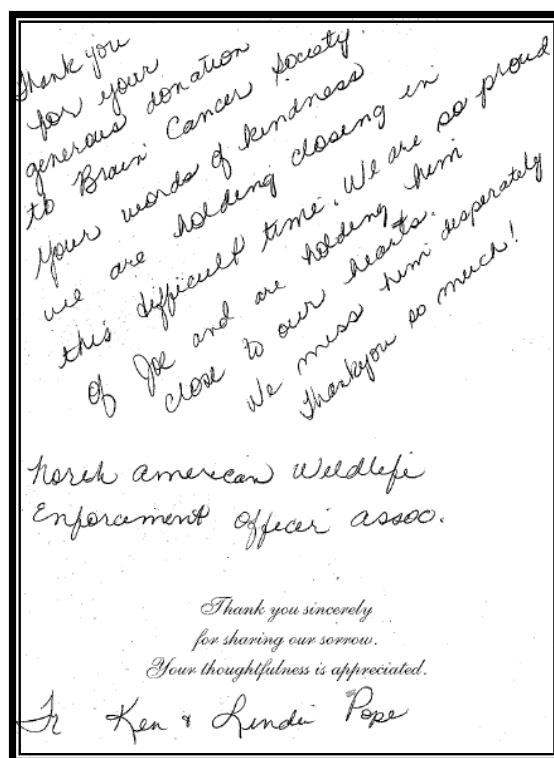 Thank you
for your
generous donation
to Brain Cancer Society.
Your words of kindness
we are holding closing in
this difficult time. We are so proud
of Joe and are holding him
close to our hearts.
We miss him desperately
Thankyou so much!
North American Wildlife
Enforcement Officer assoc.
Thank you sincerely
for sharing our sorrow.
Your thoughtfulness is appreciated.
Fr Ken & Linda Pope